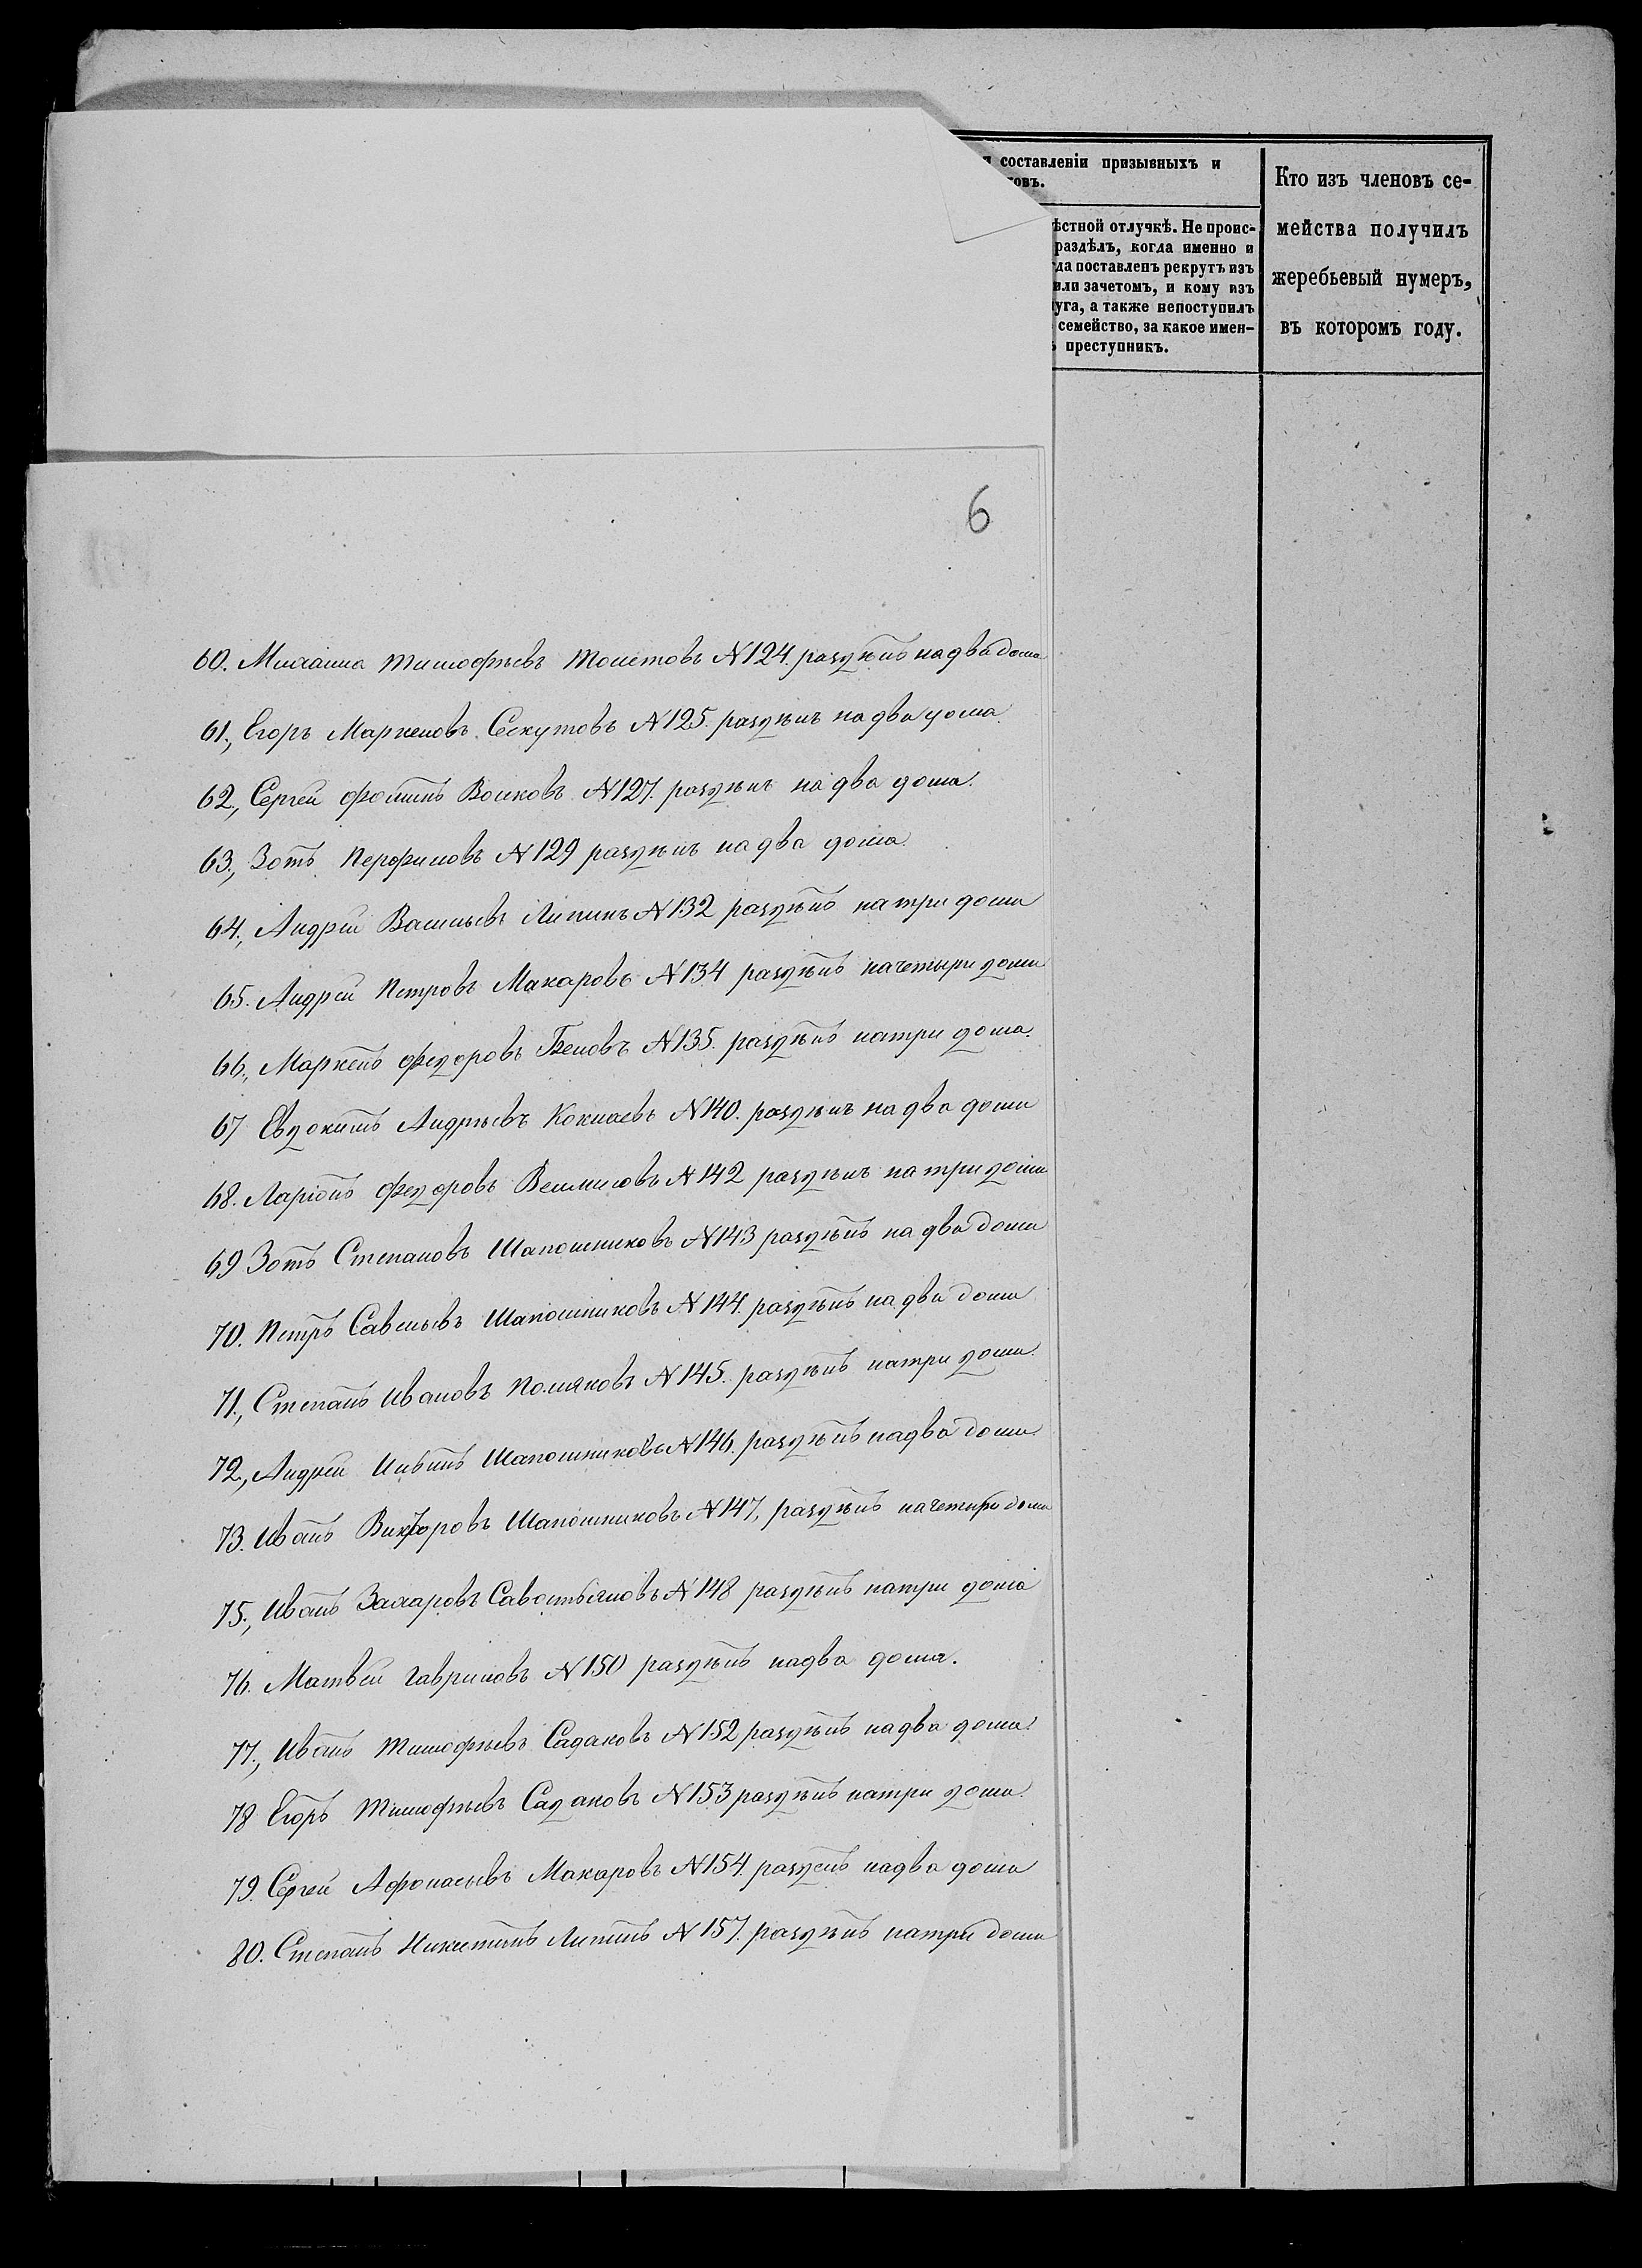 составленіи призывныхъ и
ковъ.
Кто изъ членовъ се-
мейства получилъ
жеребьевый нумеръ,
въ которомъ году.
ѣстной отлучкѣ. Не проис-
раздѣлъ, когда именно и
да поставленъ рекрутъ изъ
или зачетомъ, и кому изъ
уга, а также непоступилъ
семейство, за какое имен-
преступникъ.
6
60. Михаила Тимофѣевъ Толстовъ N124. раздѣлъ на два дома
61., Егоръ Маркеловъ Секутовъ N125. раздѣлъ на два дома.
62., Сергей Фоминъ Волковъ N127. раздѣлъ на два дома.
63., Зотъ Перфиловъ N129 раздѣлъ на два дома.
64., Андрей Васильевъ Липинъ N132 раздѣлъ на три дома
65. Андрей Петровъ Макаровъ N134 раздѣлъ на четыри дома
66., Маркелъ Федоровъ N135. раздѣлъ на три дома.
67 Евдокимъ Андрѣевъ N140. раздѣлъ на два дома
68. Ларіонъ Федоровъ N142 раздѣлъ на три дома
69 Зотъ Степановъ Шапошниковъ N143 раздѣлъ на два дома
70. Петръ Савельевъ Шапошниковъ N144. раздѣлъ на два дома
71., Степанъ Ивановъ Поляковъ N145. раздѣлъ на три дома.
72., Андрей Шапошниковъ N146. раздѣлъ на два дома
73. Иванъ Викторовъ Шапошниковъ N147, раздѣлъ на четыри дома
75., Иванъ Захаровъ Савостьяновъ N148 раздѣлъ на три дома
76. Матвей Гавриловъ N150 раздѣлъ на два дома.
77., Иванъ Тимофѣевъ Садаковъ N152 раздѣлъ на два дома.
78 Егоръ Тимофѣевъ Садаковъ N153 раздѣлъ на три дома.
79. Сергей Афонасьевъ Макаровъ N154. раздѣлъ на два дома
80. Степанъ Никитинъ Липинъ N157. раздѣлъ на три дома